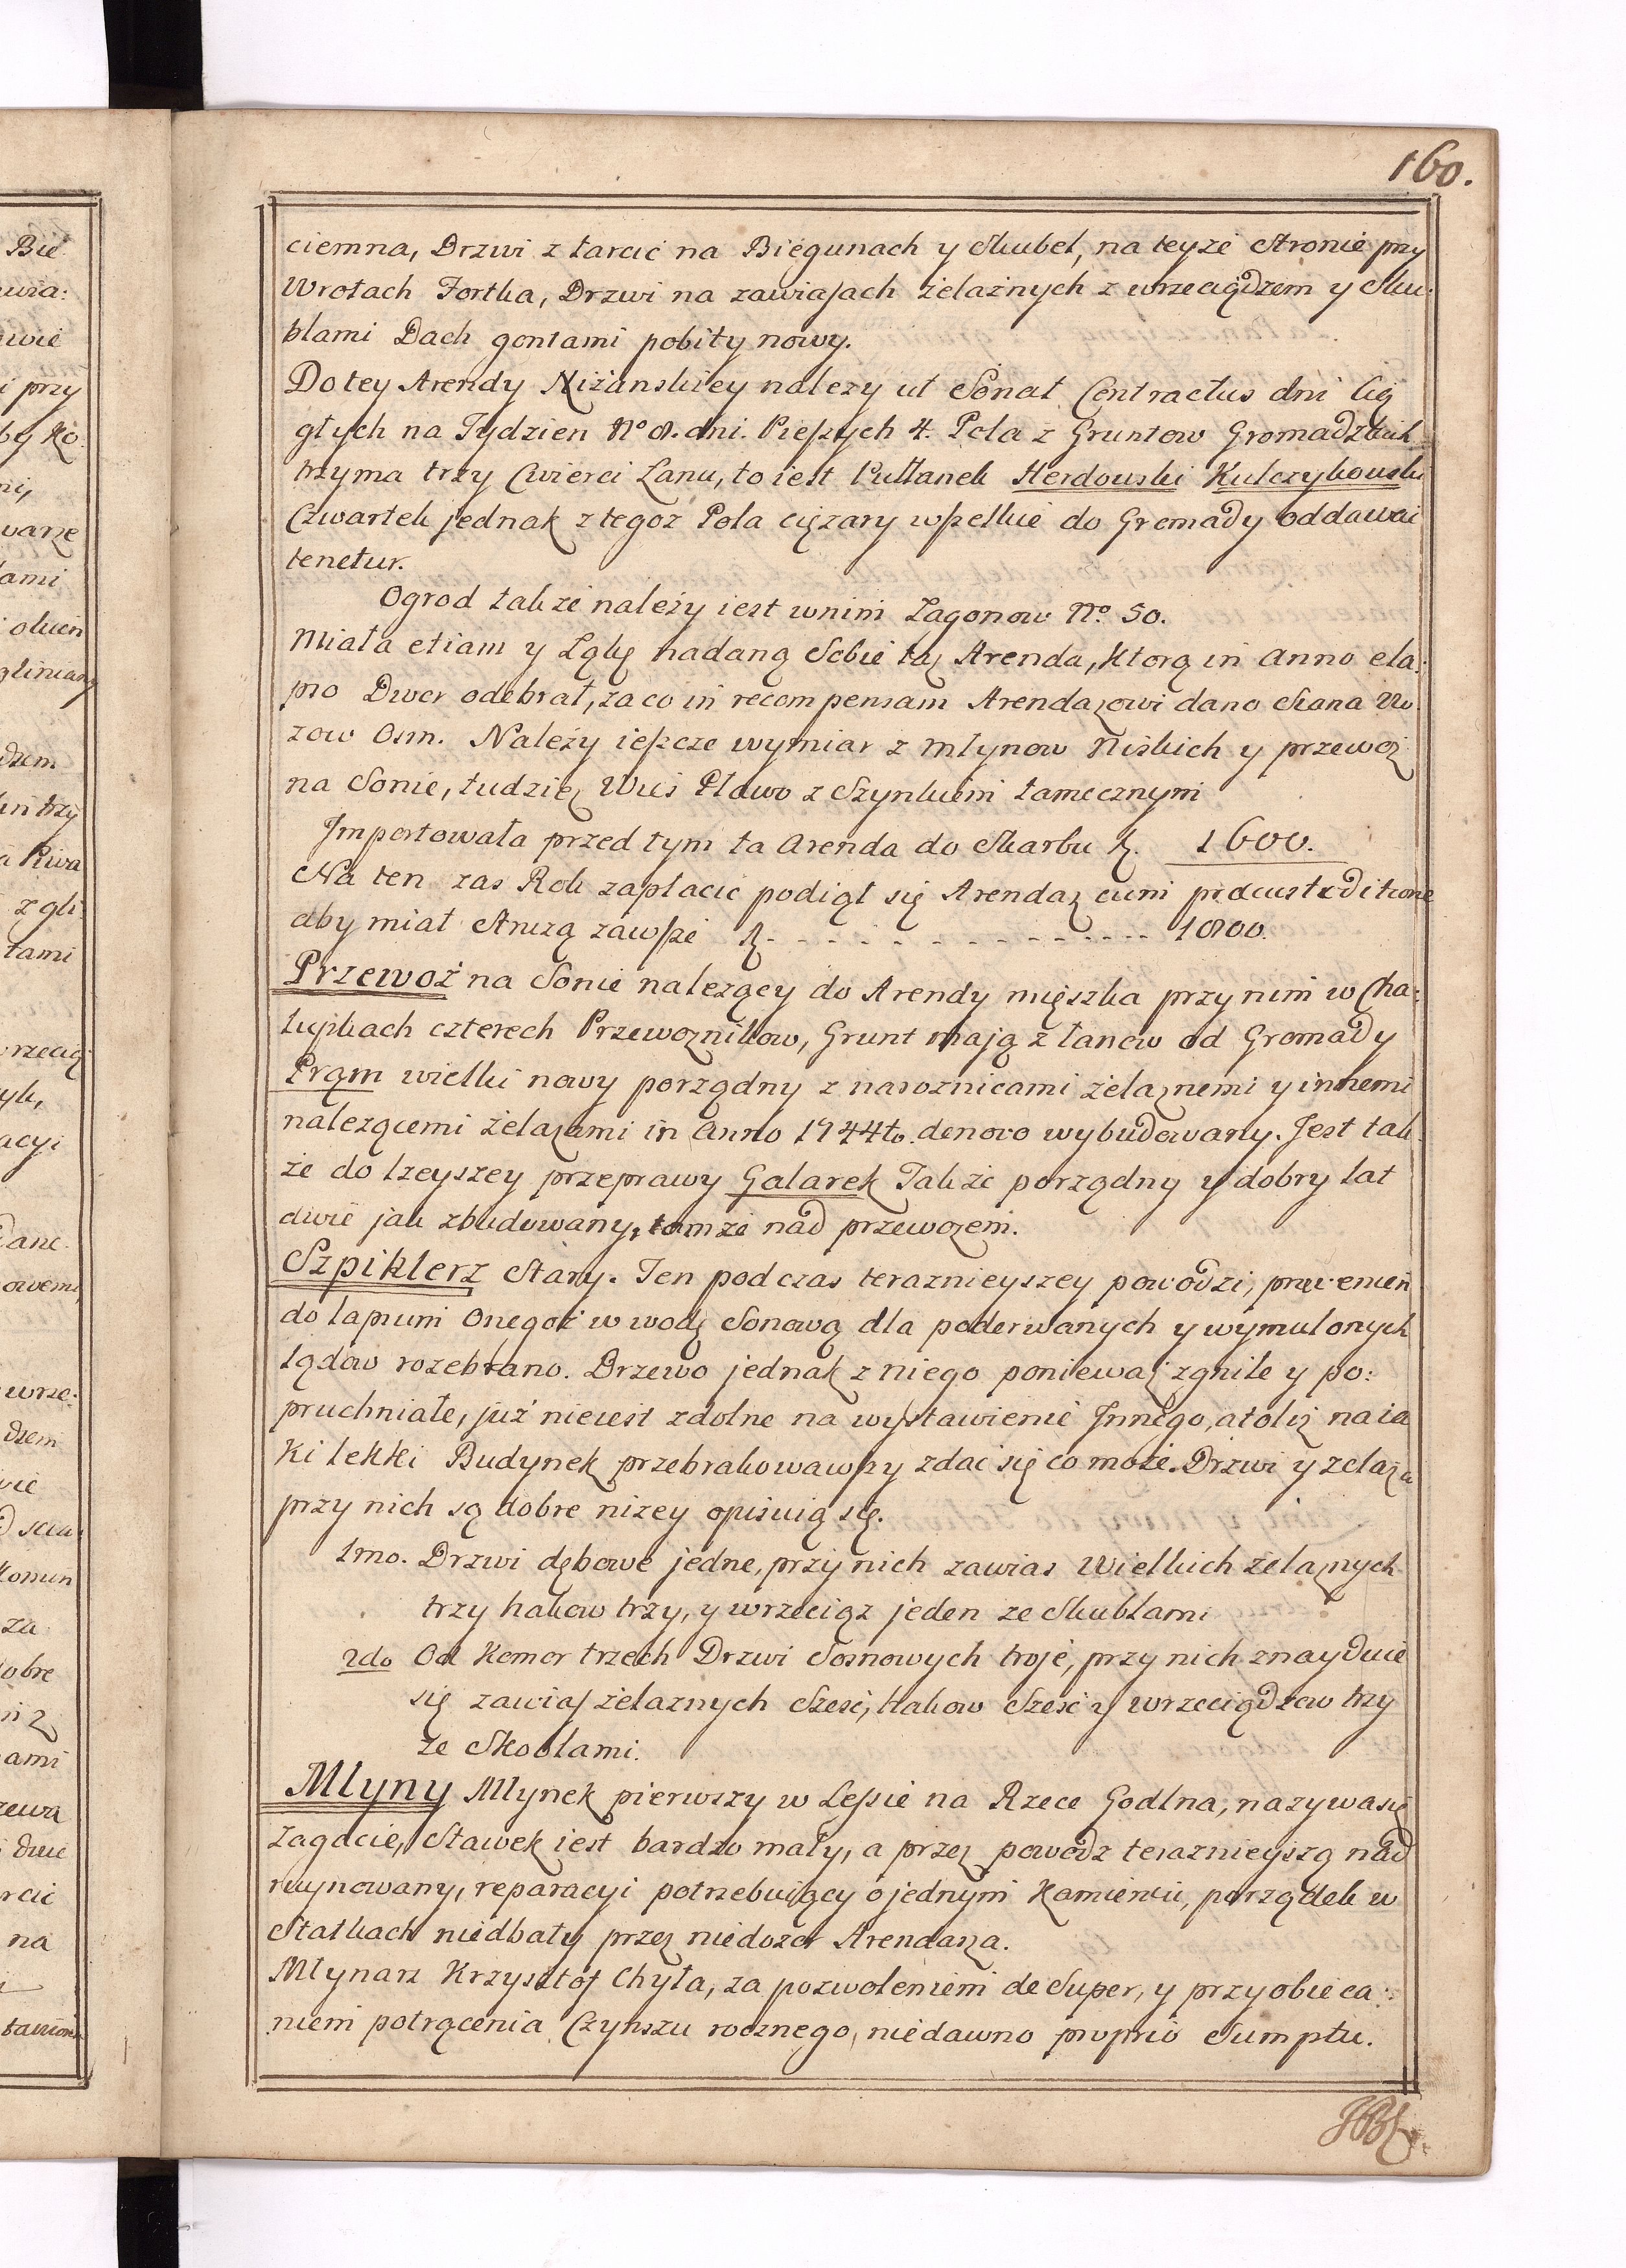 160.
ciemna, Drzwi z tarcic na Biegunach y Skubel, na teyze Stronie przy
Wrotach Fortka, Drzwi na zawiasach żelaznych z wrzeciądzem y Sku:
blami Dach gontami pobity nowy.
Do tey Arendy Niżanskiey nalezy ut Sonat Contractus dni Cią
głych na Tydzien No 8. dni. Pieszych 4. Pola z Gruntow Gromadzkich
trzyma trzy Cwierci Lanu, to iest Pułłanek Herdowski Kulczykowski
Czwartek jednak z tegoz Pola cięzary wszelkie do Gromady oddawac
tenetur.
Ogrod takze należy iest wnim Zagonow No. 50.
Miała etiam y Łąkę nadaną Sobie taz Arenda, Ktorą in Anno ela:
pso Dwor odebrał, za co in recompensam Arendazowi dano Siana Wo
zow Osm. Należy ieszcze wymiar z młynow Niskich y przewoz
na Sonie, tudziez Wies Pławo z Szynkiem tamecznym
Importowała przed tym ta Arenda do Skarbu zł. 1600.
Na ten zas Rok zapłacic podiął się Arendaz cum
aby miał Strużą zawsze zł. - - - - - - - - - - - - - - - - 1800.
Przewoź na Sonie nalezący do Arendy mięszka przy nim w Cha:
łupkach czterech Przewoznikow, Grunt mają z łanow od Gromady
Prąm wielki nowy porządny z narożnicami żelaznemi y innemi
nalezącemi żelazami in Anno 1744to. denovo wybudowany. Jest tak
że do lzeyszey przeprawy Galarek Takze porządny y dobry lat
dwie jak zbudowany, tamze nad przewozem.
Szpiklerz Stary. Ten pod czas teraznieyszey powodzi,
do lapsum Onegoż w wodę Sonową dla poderwanych y wymulonych
lądow rozebrano. Drzewo jednak z niego poniewaz zgniłe y po:
pruchniałe, już nie iest zdolne na wystawienie Innego, a tolisz na ia
Ki lekki Budynek przebrakowawszy zdac się co może. Drzwi y zelaza
przy nich są dobre nizey opisuią się.
1mo. Drzwi dębowe jedne, przy nich zawias Wielkich żelaznych
trzy hakow trzy, y wrzeciąz jeden ze Skublami
2do Od Komor trzech Drzwi Sosnowych troje, przy nich znayduie
się zawias żelaznych Szesć, Hakow Szesć y wrzeciądzow trzy
ze Skoblami.
Młyny Młynek pierwszy w Lesie na Rzece Godlna, nazywa się
Zagacie, Stawek iest bardzo mały, a przez powodz teraznieyszą nad
ruynowany, reparacyi potrzebuiący o jednym Kamieniu, porządek w
Statkach niedbały przez niedozor Arendarza.
Młynarz Krzysztof Chyła, za pozwoleniem de Super, y przyobieca:
niem potrącenia Czynszu rocznego, niedawno proprio Sumptu.